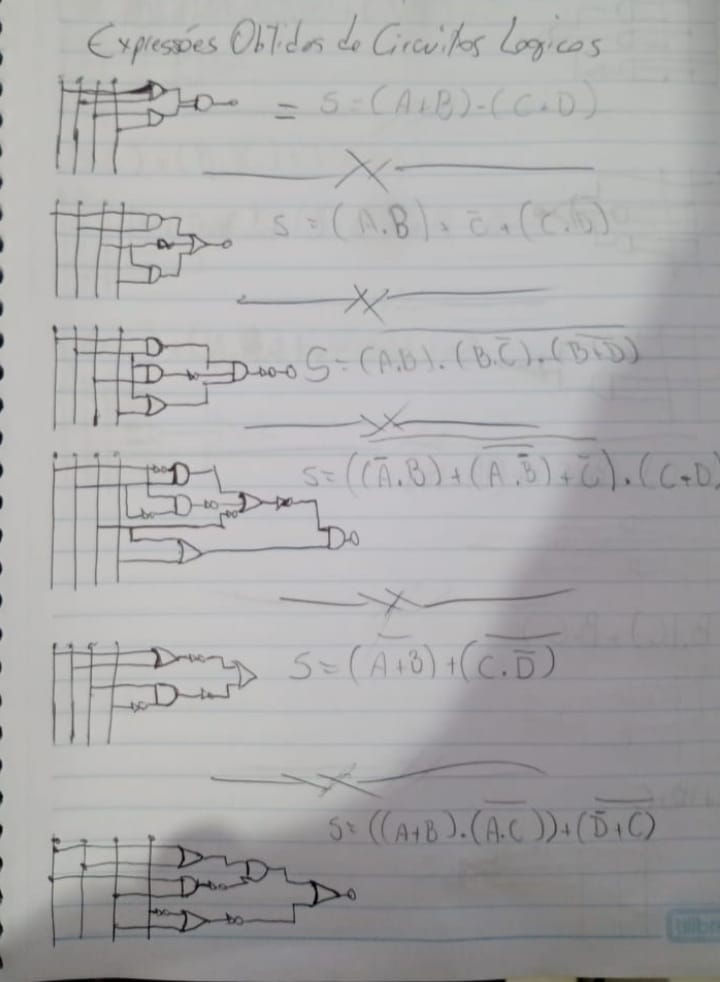 Expressões Obtidas de Circuitos Logicos
= S = (A+B)·(C+D)
S = (A.B) + C̅ + (C.D̅)
S = (A.B).(B.C̅).(B+D)
S = ((A̅.B)+(A.B̅)+C̅).(C+D)
S = (A+B)+(C.D̅)
S = ((A+B).(A.C))+(D̅+C)
tilibra